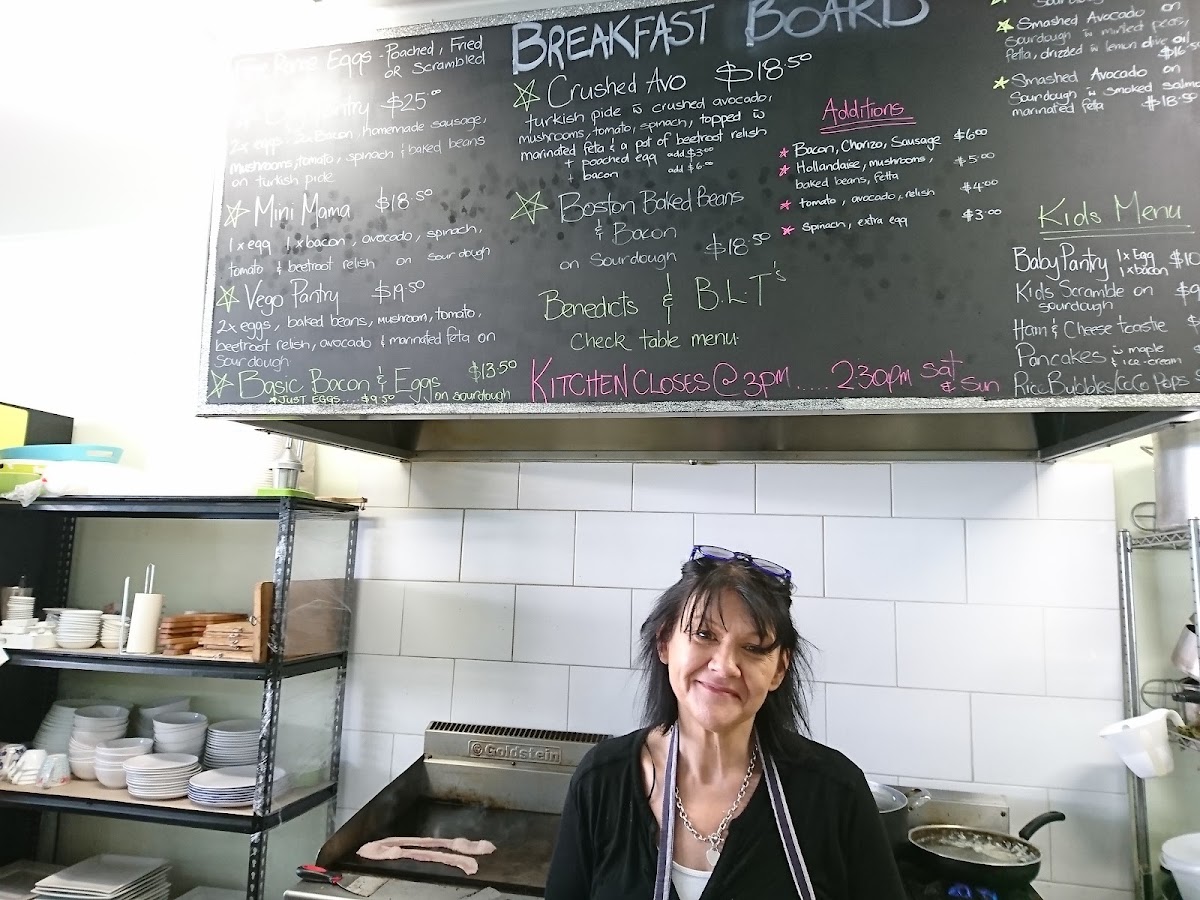 BREAKFAST BOARD
Free Range Eggs - Poached, Fried
OR Scrambled
Pantry $25.00
2 x eggs, 2x Bacon, homemade sausage,
mushrooms, tomato, spinach & baked beans
on turkish pide
Mini Mama $18.50
1 x egg 1 x bacon, avocado, spinach,
tomato & beetroot relish on sour dough
Vego Pantry $19.50
2 x eggs, baked beans, mushroom, tomato,
beetroot relish, avocado & marinated feta on
sourdough
Basic Bacon & Eggs $13.50
*JUST EGGS....$9.50 on sourdough
Crushed Avo $18.50
turkish pide w crushed avocado,
mushrooms, tomato, spinach, topped w
marinated feta & a pot of beetroot relish
+ poached egg add $3.00
+ bacon add $6.00
Boston Baked Beans
& Bacon
on Sourdough $18.50
Benedicts & B.L.T's
Check table menu.
KITCHEN CLOSES @ 3pm .... 2:30pm Sat
& Sun
Additions
Bacon, Chorizo, Sausage $6.00
Hollandaise, mushrooms, $5.00
baked beans, fetta
tomato, avocado, relish $4.00
Spinach, extra egg $3.00
Sourdough
Smashed Avocado on
Sourdough w minted peas,
fetta, drizzled w lemon olive oil
$16.50
Smashed Avocado on
Sourdough w smoked salmon
marinated feta $18.50
Kids Menu
Baby Pantry 1 x Egg $10
1 x bacon
Kids Scramble on $9
sourdough
Ham & Cheese toastie $
Pancakes w maple $
& ice-cream
Rice Bubbles/CoCo Pops $
Goldstein